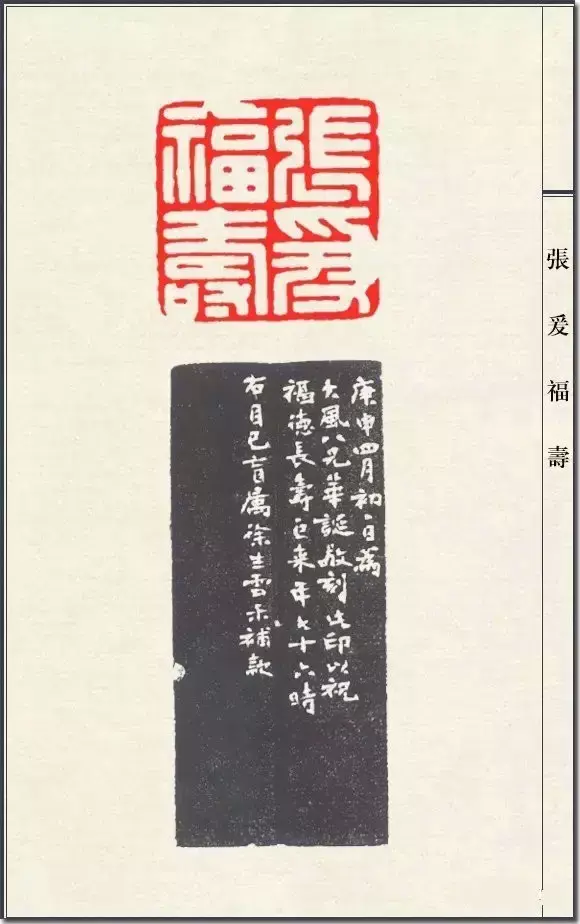 張爰福壽
張爰
福壽
庚申四月初一日為
大風八兄華誕敬刻此印以祝
福德長壽巨来年七十六時
右目已盲屬徐生雲尗補款